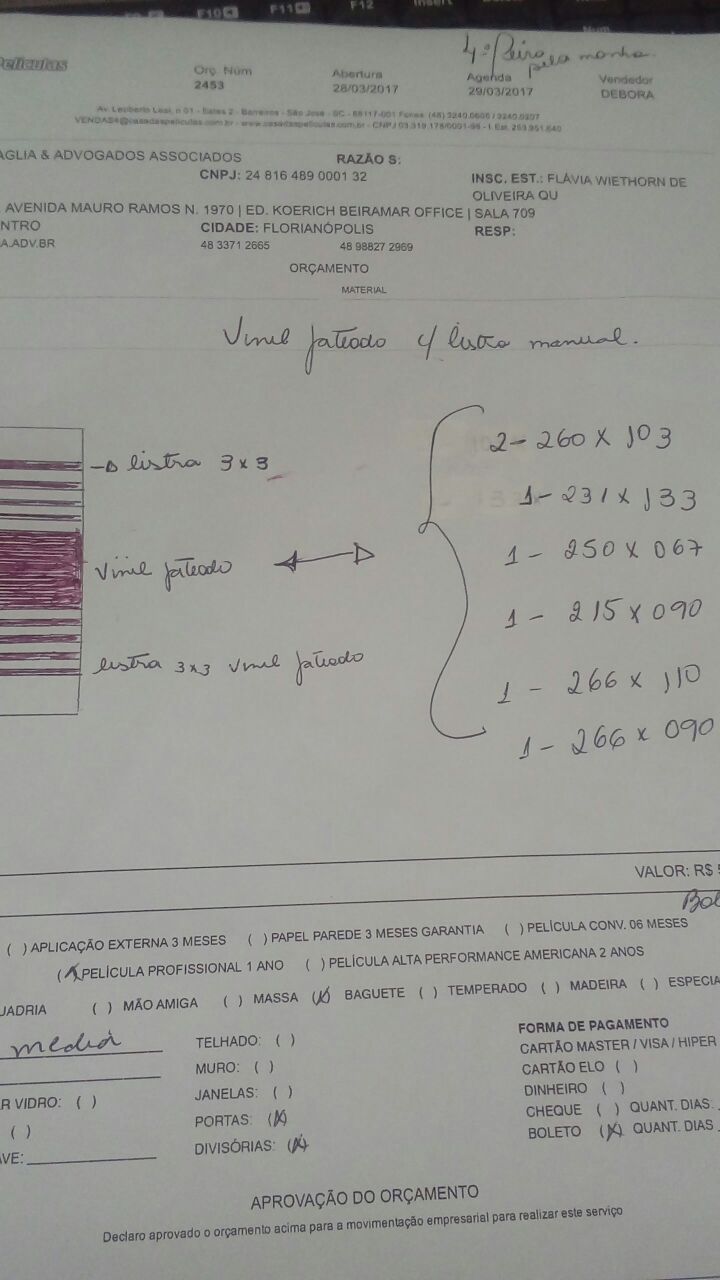 F10 F11 F12 Insert
4ª feira pela manhã.
Películas
Orç. Núm Abertura Agenda Vendedor
2453 28/03/2017 29/03/2017 DEBORA
Av. Leoberto Leal, n 01 - Barreiros - São José - SC - 88117-001 Fones: (48) 3240.0606 /
VENDAS4@casadaspeliculas.com.br - www.casadaspeliculas.com.br - CNPJ
AGLIA & ADVOGADOS ASSOCIADOS RAZÃO S:
CNPJ: 24 816 489 0001 32 INSC. EST.: FLÁVIA WIETHORN DE
OLIVEIRA QU
AVENIDA MAURO RAMOS N. 1970 | ED. KOERICH BEIRAMAR OFFICE | SALA 709
NTRO CIDADE: FLORIANÓPOLIS RESP:
A.ADV.BR 48 3371 2665 48 98827 2969
ORÇAMENTO
MATERIAL
Vinil jateado c/ listra manual.
listra 3x3
vinil jateado
listra 3x3 vinil jateado
2 - 260 x 103
1 - 231 x 133
1 - 250 x 067
1 - 215 x 090
1 - 266 x 110
1 - 266 x 090
VALOR: R$
Bol
( ) APLICAÇÃO EXTERNA 3 MESES ( ) PAPEL PAREDE 3 MESES GARANTIA ( ) PELÍCULA CONV. 06 MESES
(X) PELÍCULA PROFISSIONAL 1 ANO ( ) PELÍCULA ALTA PERFORMANCE AMERICANA 2 ANOS
UADRIA ( ) MÃO AMIGA ( ) MASSA (X) BAGUETE ( ) TEMPERADO ( ) MADEIRA ( ) ESPECIA
media
R VIDRO: ( )
( )
AVE:
TELHADO: ( )
MURO: ( )
JANELAS: ( )
PORTAS: (X)
DIVISÓRIAS: (X)
FORMA DE PAGAMENTO
CARTÃO MASTER / VISA / HIPER
CARTÃO ELO ( )
DINHEIRO ( )
CHEQUE ( ) QUANT. DIAS:
BOLETO (X) QUANT. DIAS
APROVAÇÃO DO ORÇAMENTO
Declaro aprovado o orçamento acima para a movimentação empresarial para realizar este serviço